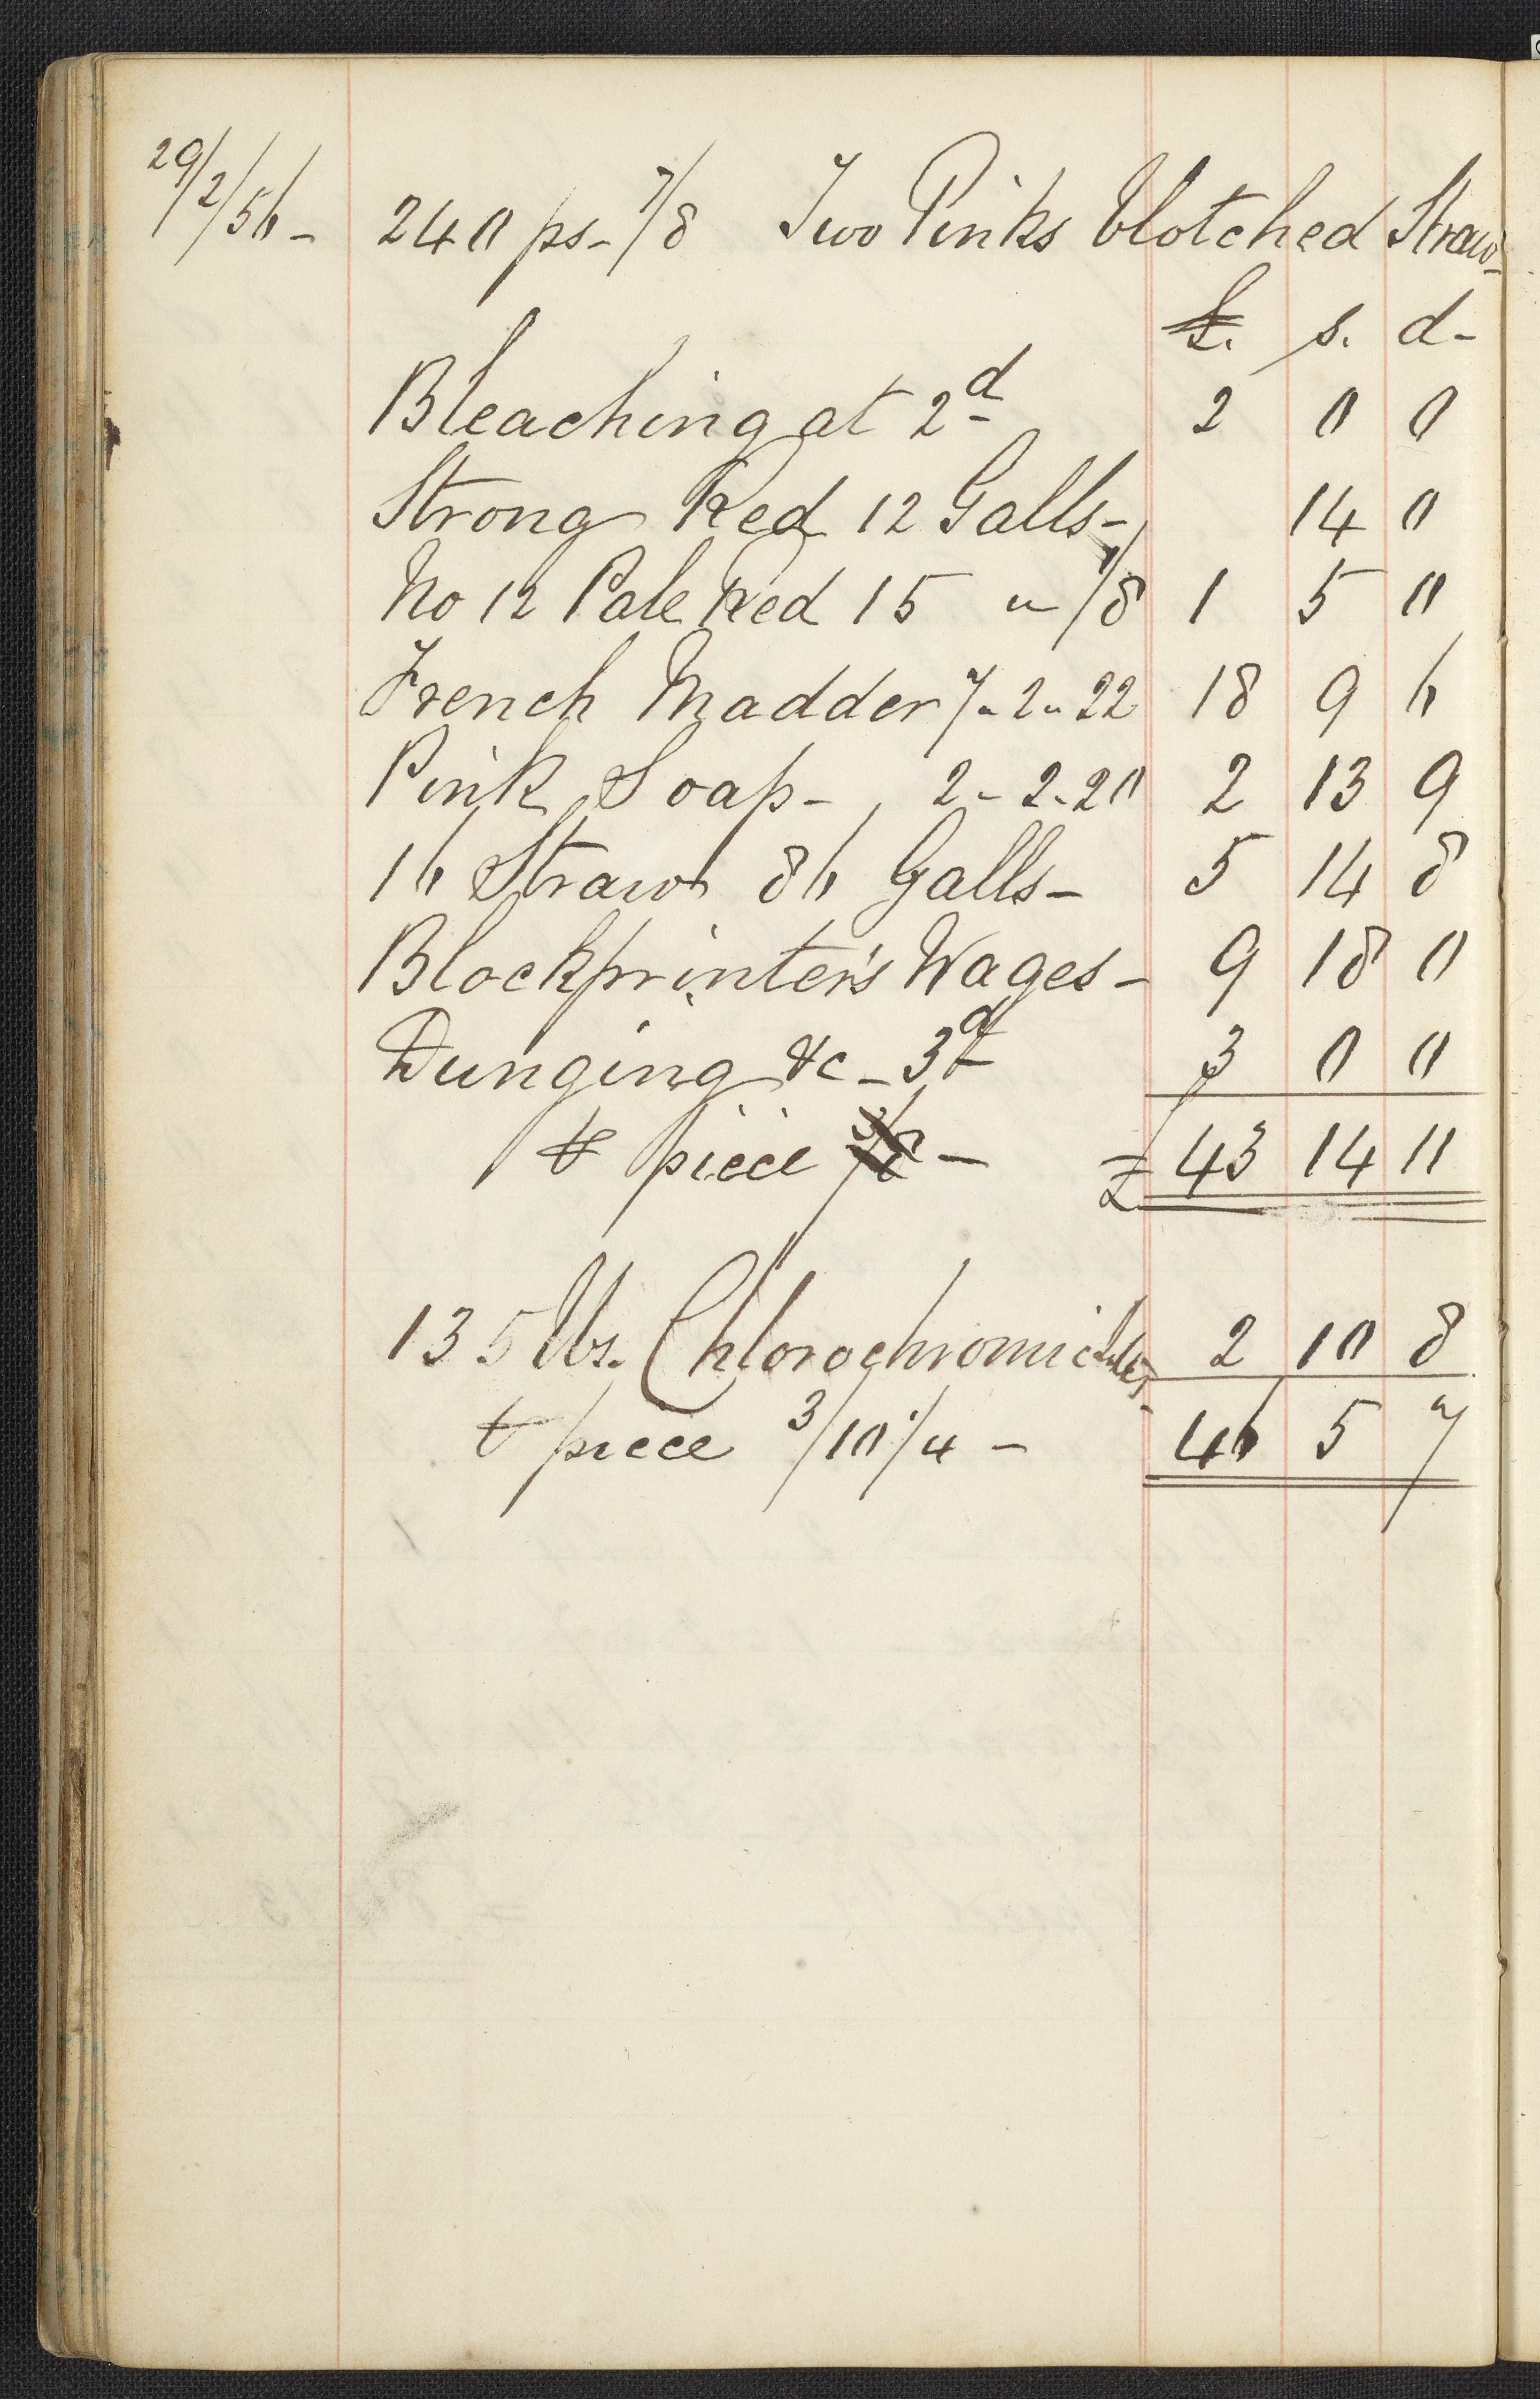 29/2/56 - 240 ps - 7/8 Two Pinks blotched Straw
£. s. d -
Bleaching at 2d 2 0 0
Strong Red 12 Galls - 14 0
No 12 Pale Red 15 " 1/8 1 5 0
French Madder 7 - 2 - 22 18 9 6
Pink Soap - 2 - 2 - 20 2 13 9
16 Straw 86 Galls - 5 14 8
Blockprinter's Wages - 9 18 0
Dunging &c - 3d 3 0 0
⅌ piece - £ 43 14 11
135 lbs. Chlorochromicales 2 10 8
⅌ piece 3/10 1/4 - 46 5 7